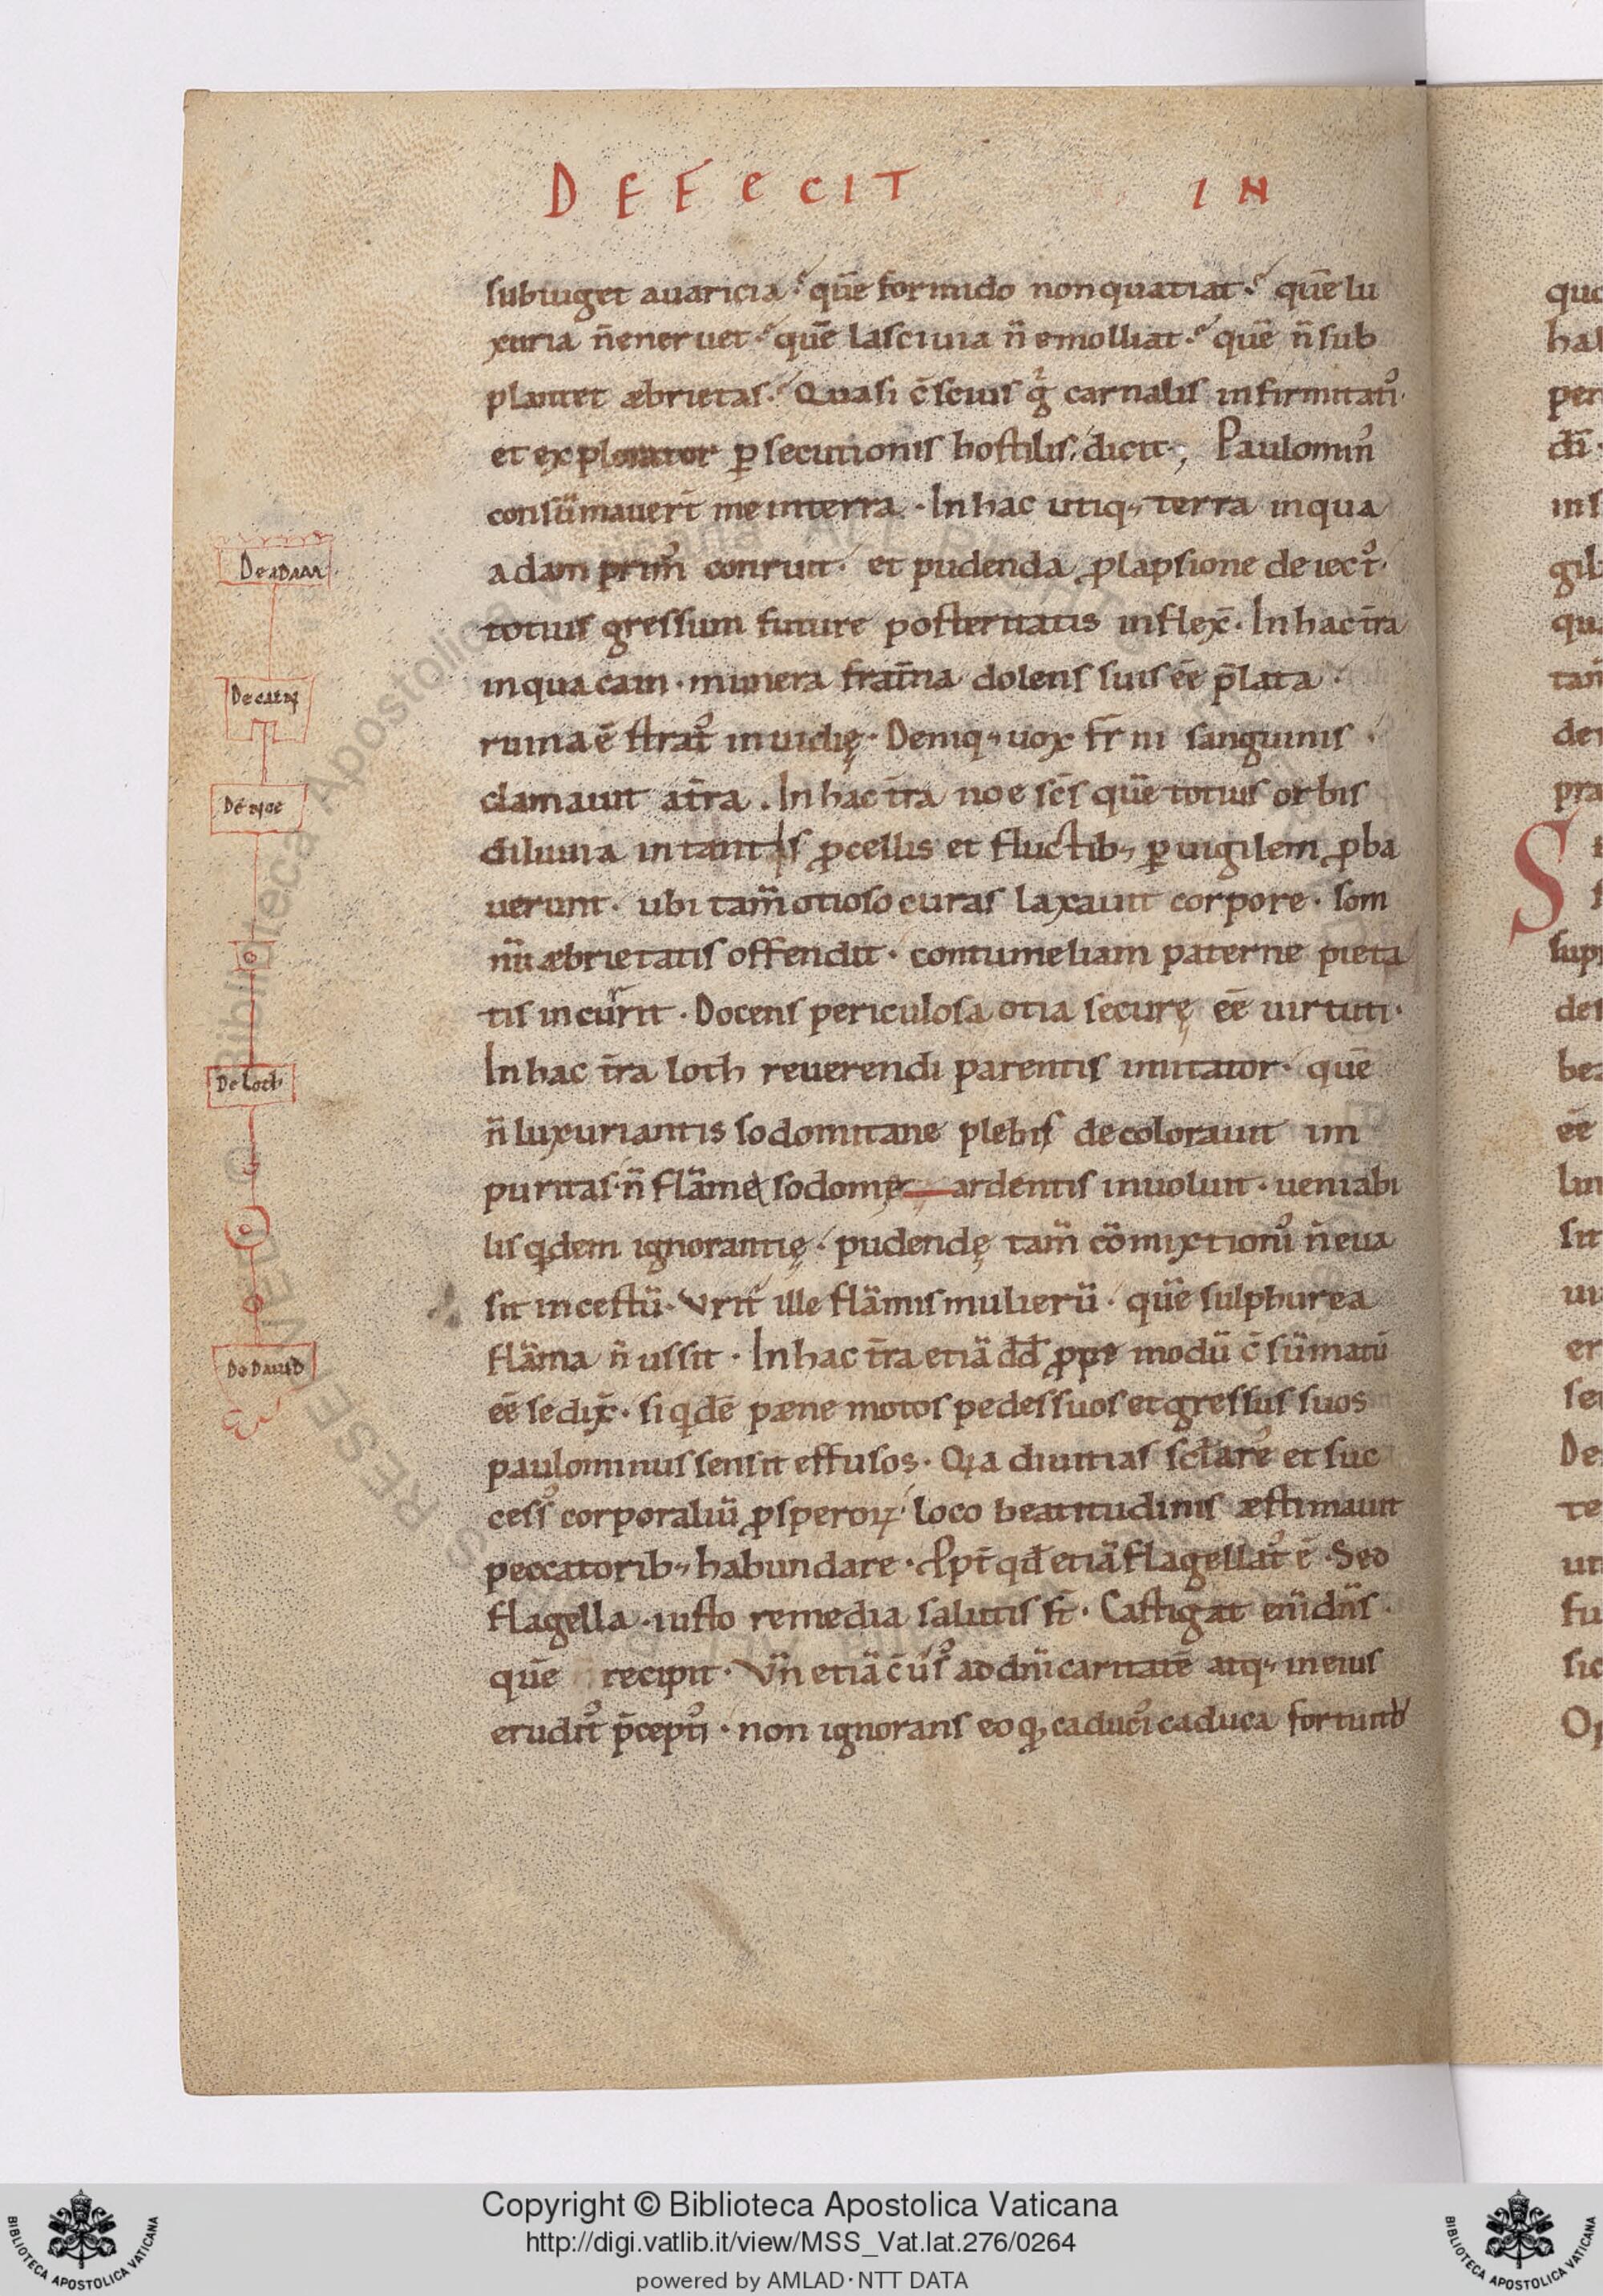 DEFECIT IN
subiuget auaricia? quē formido non quatiat? quē lu
xuria n̄ eneruet? quē lasciuia n̄ emolliat? quē n̄ sub
plantet æbrietas? Quasi c̄scius g̊ carnalis infirmitatū·
et explorator ꝑsecutionis hostilis, dicit; Paulomin᷒
consūmauer̄t me in terra. In hac utiq; terra in qua
adam prim᷒ conruit. et pudenda ꝓlapsione deiect᷒·
totius gressum future posteritatis inflex̄. In hac t̄ra
in qua cain munera frat̄na dolens suis ēē p̄lata
ruina ē strat᷒ inuidię. Deniq; uox fr̄ni sanguinis
clamauit a t̄ra. In hac t̄ra noe sc̄s quē totius orbis
diluuia in tantis ꝓcellis et fluctib; ꝑuigilem ꝓba
uerunt. ubi tam̄ otioso curas laxauit corpore. som
nū æbrietatis offendit. contumeliam paterne pieta
tis incurrit. Docens periculosa otia securę ēē uirtuti.
In hac t̄ra loth reuerendi parentis imitator. quē
n̄ luxuriantis sodomitane plebis decolorauit im
puritas. n̄ flāme sodomę ardentis inuoluit. ueniabi
lis qdem ignorantię. pudendę tam̄ cōmixtionis n̄ eua
sit incestū. Vrit᷒ ille flāmis mulierū. quē sulphurea
flāma n̄ ussit. In hac t̄ra etiā dd̄ ꝓpe modū c̄sūmatū
ēē se dix̄. siqdē pæne motos pedes suos et gressus suos
paulominus sensit effusos. Qia diuitias sclāre et suc
cess᷒ corporaliū ꝓsperoꝝ loco beatitudinis æstimauit
peccatorib; habundare. Ꝓpt̄ qd̄ etiā flagellat᷒ ē. Sed
flagella iusto remedia salutis st̄. Castigat eni dn̄s
quē recipit. Vn̄ etiā c̄uersus ad dn̄i caritatē atq; in eius
erudit᷒ p̄ceptis. non ignorans eo qꝫ caduci caduca
De adam
De cain
De noe
De Loth
De Dauid
Copyright © Biblioteca Apostolica Vaticana
http://digi.vatlib.it/view/MSS_Vat.lat.276/0264
powered by AMLAD·NTT DATA
BIBLIOTECA APOSTOLICA VATICANA
BIBLIOTECA APOSTOLICA VATICANA